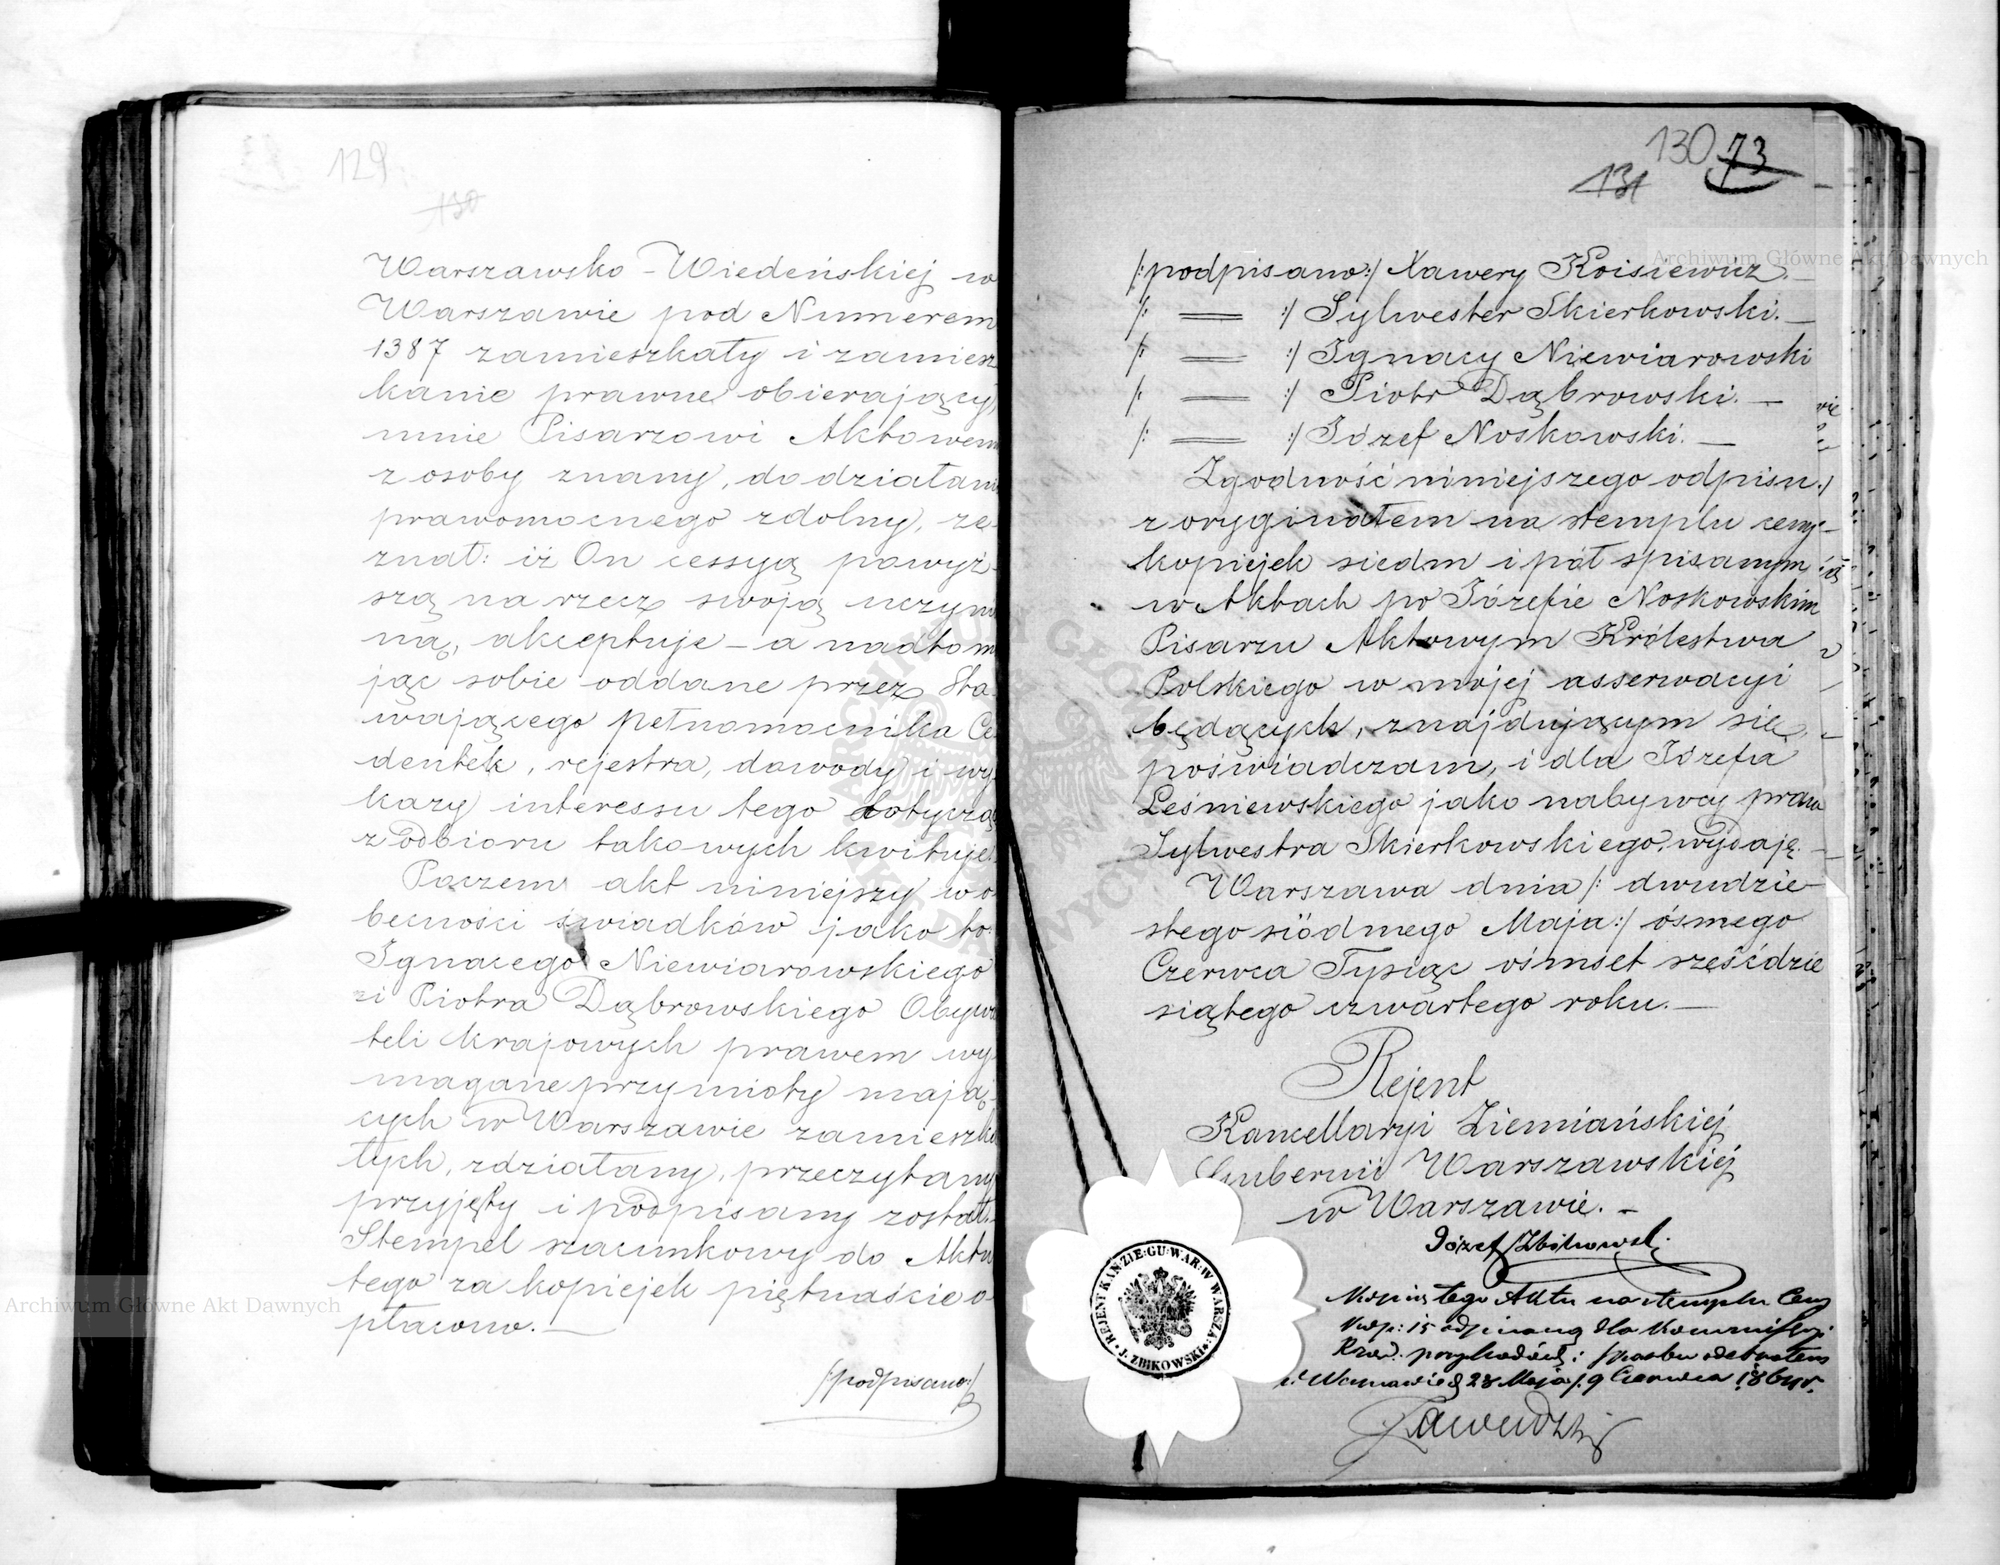 129
130
Warszawsko-Wiedeńskiej w
Warszawie pod Numerem
1387 zamieszkały i zamiesz
kanie prawne obierający,
mnie Pisarzowi Aktowem
z osoby znany, do działani
prawomocnego zdolny, ze
znał: iż On cessyą powyż
szą na rzecz swoją uczynio
ną, akceptuje – a nadto m
jąc sobie oddane przez Sta
wającego pełnomocnika Ce
dentek, rejestra, dowody i wy
kazy interessu tego dotyczą
z odbioru takowych kwituje.
Poczem akt niniejszy w o
becności świadków jako to:
Ignacego Niewiarowskiego
i Piotra Dąbrowskiego Obywa
teli krajowych prawem wy
magane przymioty mają
cych w Warszawie zamieszka
łych, zdziałany, przeczytany
przyjęty i podpisany został.
Stempel szacunkowy do Aktu
tego za kopiejek piętnaście o
płacono. —
/podpisano:/
130 73
131
/:podpisano:/ Xawery Koisiewicz. —
/: = :/ Sylwester Skierkowski. —
/: = :/ Ignacy Niewiarowski
/: = :/ Piotr Dąbrowski. —
/: = :/ Józef Noskowski. —
Zgodność niniejszego odpisu
z oryginałem na stemplu ceny
kopiejek siedm i pół spisanym
w Aktach po Józefie Noskowskim
Pisarzu Aktowym Królestwa
Polskiego w mojej asserwacyi
będących, znajdującym się,
poświadczam, i dla Józefa
Leśniewskiego jako nabywcy praw
Sylwestra Skierkowskiego, wydaję. —
Warszawa dnia /: dwudzie
stego siódmego Maja :/ ósmego
Czerwca Tysiąc ośmset sześćdzie
siątego czwartego roku. —
Rejent
Kancellaryi Ziemiańskiej
Gubernii Warszawskiej
w Warszawie. —
Józef Zbikowski
REJENT KAN: ZIE: GU: WAR: W WARSZA:
J. ZBIKOWSKI
Kopię tego Aktu na stemplu Ceny
Kop: 15 odpisaną dla Kommissyi
Rząd. przychodów i skarbu odebrałem
w Warszawie d 28 Maja /: 9 Czerwca 1864 r.
Zawudzki
Archiwum Główne Akt Dawnych
Archiwum Główne Akt Dawnych
ARCHIWUM GŁÓWNE AKT DAWNYCH